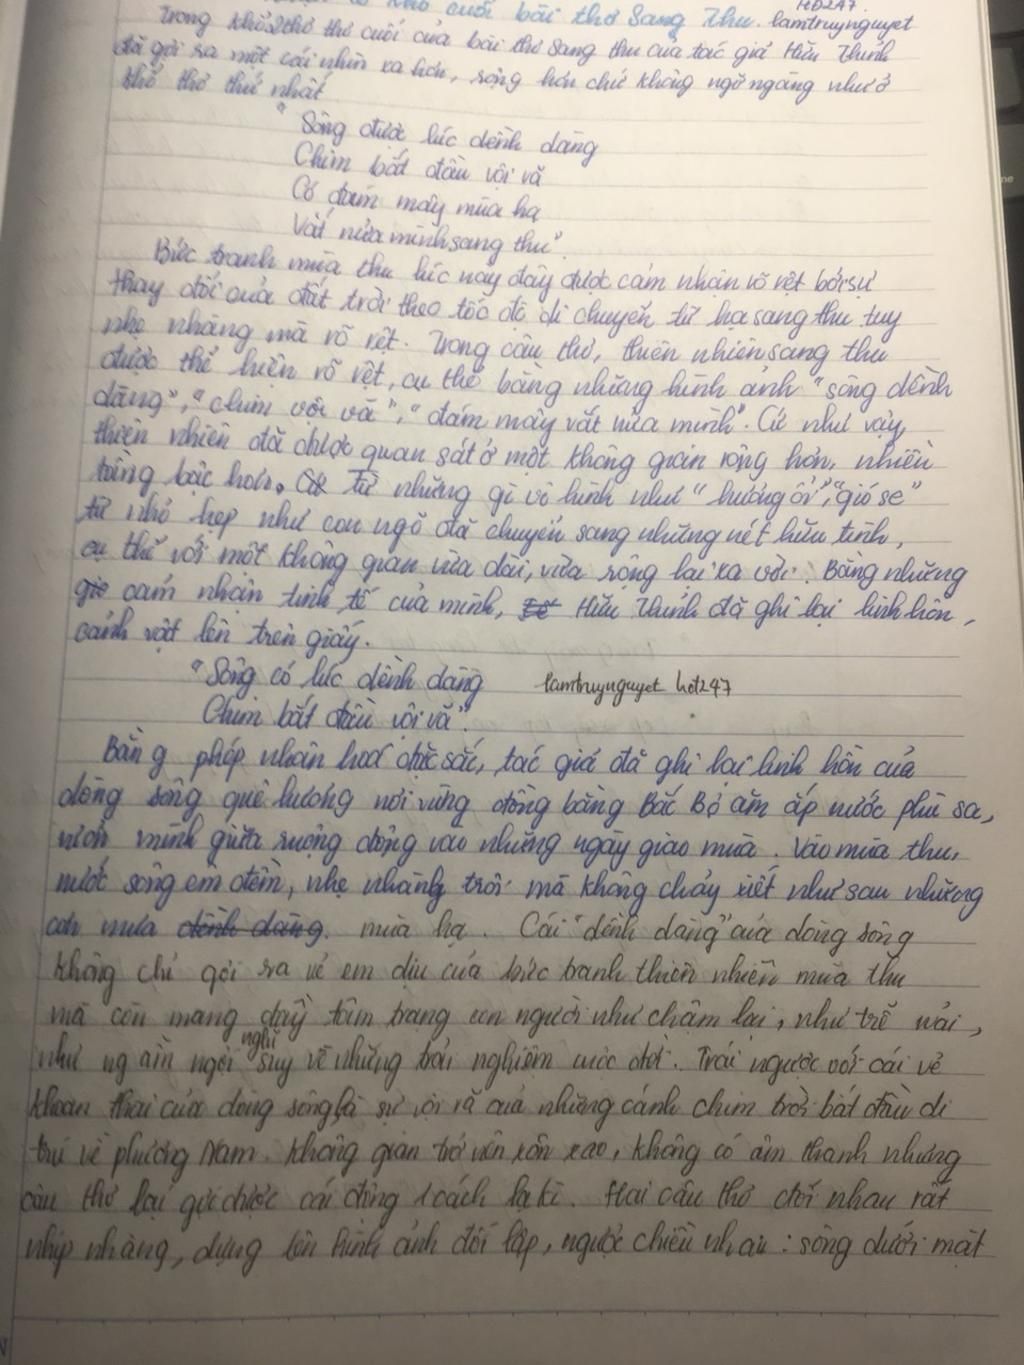 khổ cuối bài thơ Sang Thu. HĐ247.
Trong khổ thơ thơ cuối của bài thơ Sang thu của tác giả Hữu Thỉnh lamtruynguyet
đã gợi ra một cái nhìn xa hơn, rộng hơn chứ không ngỡ ngàng như ở
khổ thơ thứ nhất
"Sông được lúc dềnh dàng
Chim bắt đầu vội vã
Có đám mây mùa hạ
Vắt nửa mình sang thu".
Bức tranh mùa thu lúc này đây được cảm nhận rõ rệt bởi sự
thay đổi của đất trời theo tốc độ di chuyển từ hạ sang thu tuy
nhẹ nhàng mà rõ rệt. Trong câu thơ, thiên nhiên sang thu
được thể hiện rõ rệt, cụ thể bằng những hình ảnh "sông dềnh
dàng", "chim vội vã", "đám mây vắt nửa mình". Cứ như vậy,
thiên nhiên đã được quan sát ở một không gian rộng hơn, nhiều
tầng bậc hơn. Từ những gì vô hình như "hương ổi", "gió se"
từ nhỏ hẹp như con ngõ đã chuyển sang những nét hữu tình,
cụ thể với một không gian vừa dài, vừa rộng lại xa vời. Bằng những
cảm nhận tinh tế của mình, Hữu Thỉnh đã ghi lại linh hồn,
cảnh vật lên trên giấy.
"Sông có lúc dềnh dàng lamtruynguyet hđ247
Chim bắt đầu vội vã".
Bằng phép nhân hoá đặc sắc, tác giả đã ghi lại linh hồn của
dòng sông quê hương nơi vùng đồng bằng Bắc Bộ ăm ắp nước phù sa,
mình giữa ruộng đồng vào những ngày giao mùa. Vào mùa thu,
nước sông êm đềm, nhẹ nhàng trôi mà không chảy xiết như sau những
cơn mưa dềnh dàng. mùa hạ. Cái "dềnh dàng" của dòng sông
không chỉ gợi ra vẻ êm dịu của bức tranh thiên nhiên mùa thu
mà còn mang đầy tâm trạng con người như chậm lại, như trễ nải,
như ngẫm ngợi nghĩ suy về những trải nghiệm cuộc đời. Trái ngược với cái vẻ
khoan thai của dòng sông là sự vội vã của những cánh chim trời bắt đầu di
trú về phương Nam. Không gian trở nên xôn xao, không có âm thanh nhưng
câu thơ lại gợi được cái động 1 cách lạ kì. Hai câu thơ đối nhau rất
nhịp nhàng, dựng lên hình ảnh đối lập, ngược chiều nhau: sông dưới mặt